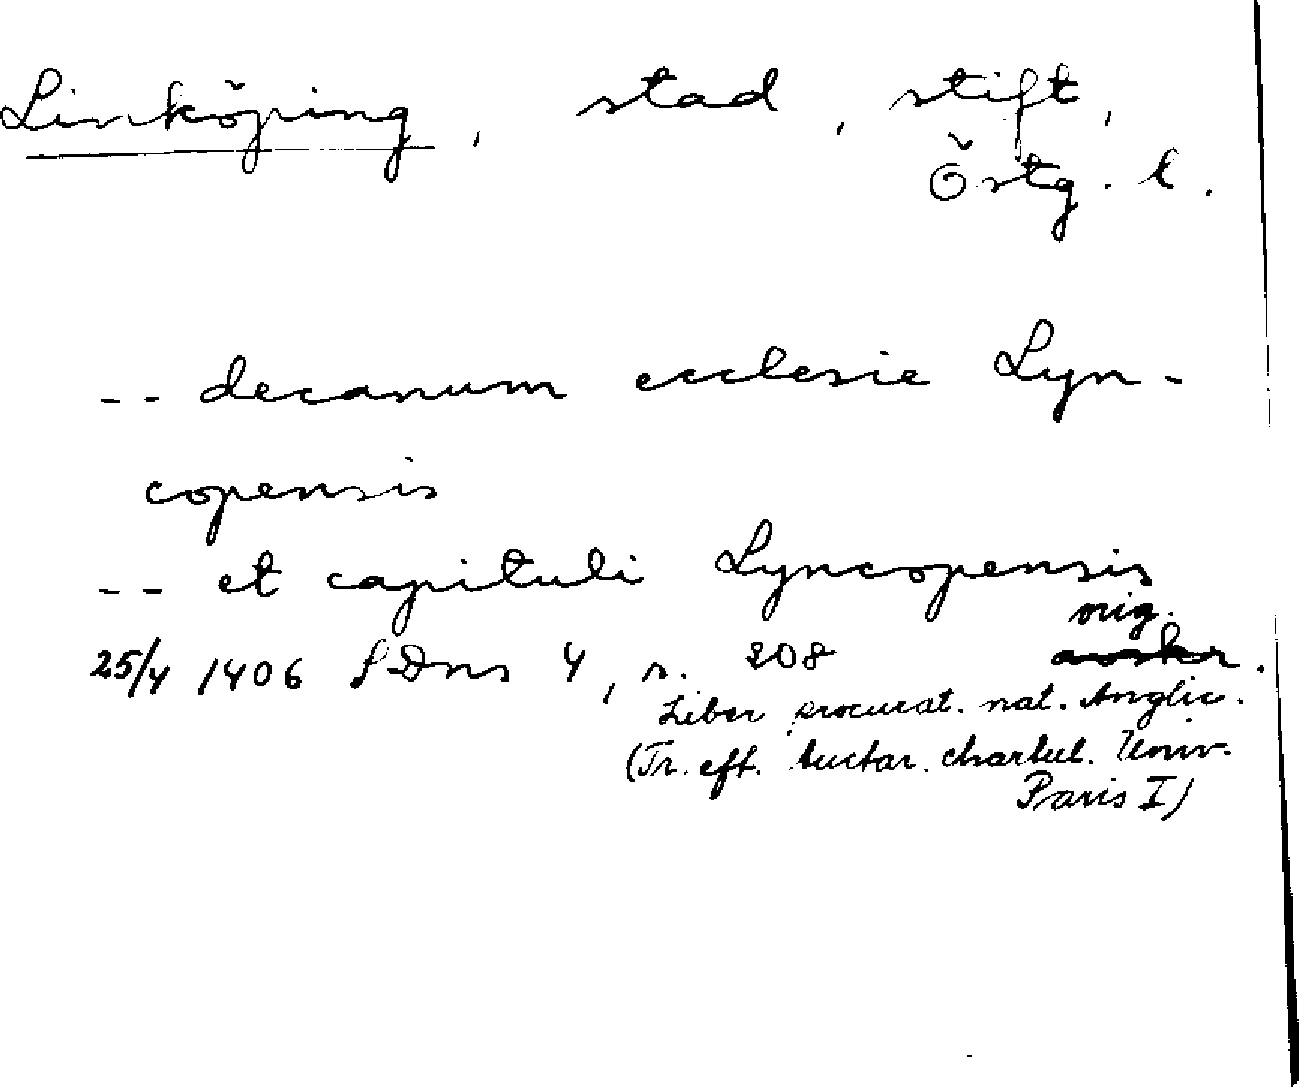 Linköping, stad, stift,
Östg. l.
-- decanum ecclesie Lyn-
copensis
-- et capituli Lyncopensis
orig.
25/4 1406 SDns 4, s. 208 avskr.
Liber procurat. nat. Anglic.
(Tr. eft. Auctar. chartul. Univ.
Paris I)